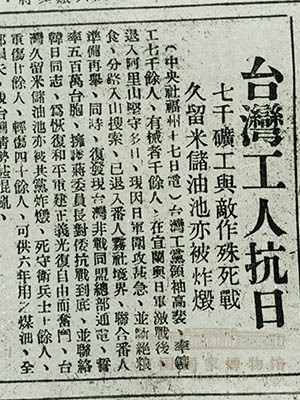 台灣工人抗日
七千礦工與敵作殊死戰
久留米儲油池亦被炸燬
(中央社福州十七日電)台灣工黨領袖高斐、率領
工七千餘人、有械者千餘人、在宜蘭與日軍激戰後
退入阿里山堅守多日、現因日軍圍攻甚急、並斷絕糧
食、分路入山搜索、已退入番人霧社境界、聯合番人
準備再舉、同時、復發現台灣非戰同盟總部通電、誓
率五百萬台胞、擁護蔣委員長對倭抗戰到底、並聯絡
韓日同志、為恢復和平重建正義光復自由而奮鬥、台
灣久留米儲油池亦被共黨炸燬、死守衛兵士十餘人、
重傷廿餘人、輕傷四十餘人、可供六年用之煤油、全
國家博物館